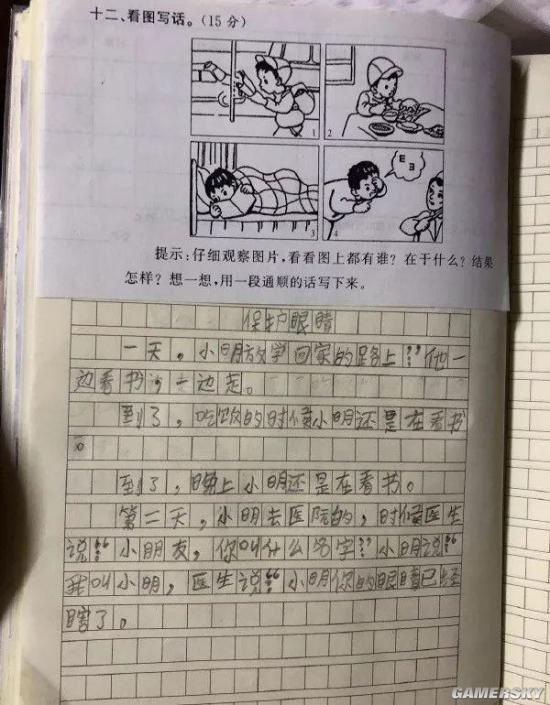 十二、看图写话。(15 分)
1
2
E
ヨ
3
4
提示:仔细观察图片,看看图上都有谁?在于什么?结果
怎样?想一想,用一段通顺的话写下来。
保护眼睛
一天,小明放学回家的路上“他一
边看书,一边走。
到了,吃饭的时候小明还是在看书
。
到了,晚上小明还是在看书。
第二天,小明去医院的,时候医生
说:“小朋友,你叫什么名字?”小明说:“
我叫小明,医生说:“小明你的眼睛已经
瞎了。
GAMERSKY